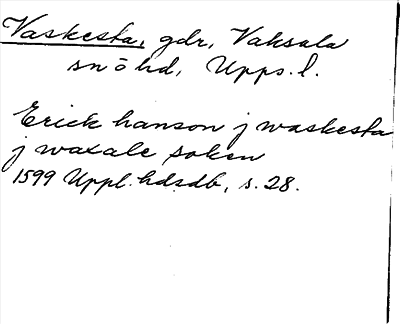 Vaskesta, gdr, Vaksala
sn o hd, Upps. l.
Erick hanson j waskesta
j waxale soken
1599 Uppl. hdsdb, s. 28.